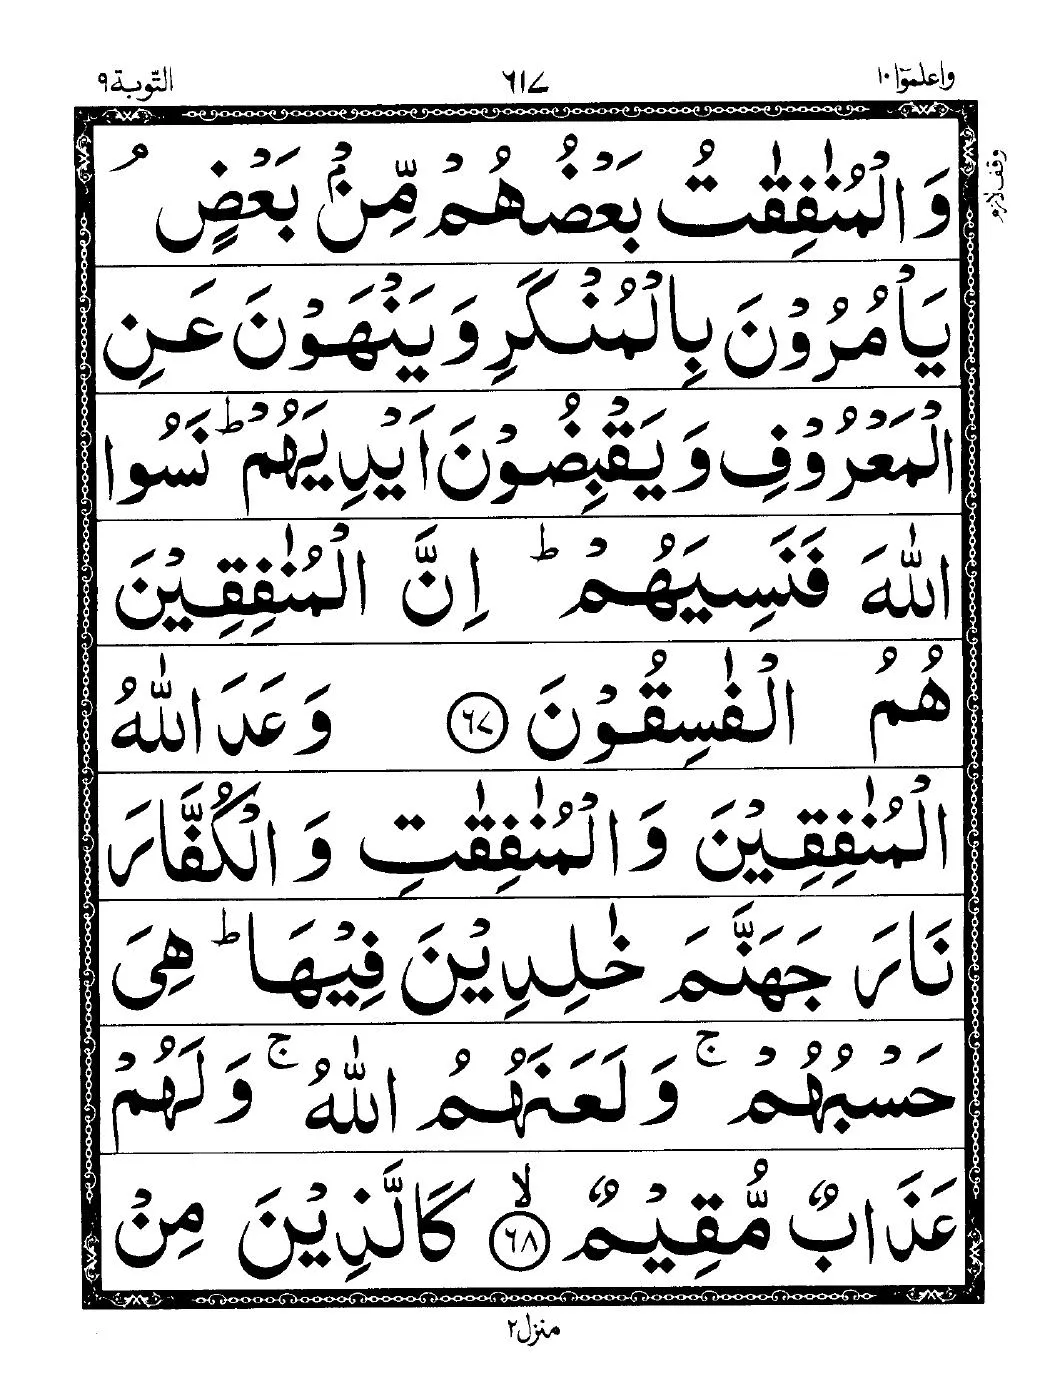 واعلموٓا ١٠
٦١٧
التّوبة ٩
وَالْمُنٰفِقٰتُ بَعْضُهُمْ مِّنْۢ بَعْضٍ ۘ
وقف لازم
يَاْمُرُوْنَ بِالْمُنْكَرِ وَيَنْهَوْنَ عَنِ
الْمَعْرُوْفِ وَيَقْبِضُوْنَ اَيْدِيَهُمْ ؕ نَسُوا
اللّٰهَ فَنَسِيَهُمْ ؕ اِنَّ الْمُنٰفِقِيْنَ
هُمُ الْفٰسِقُوْنَ ۝٦٧ وَعَدَ اللّٰهُ
الْمُنٰفِقِيْنَ وَالْمُنٰفِقٰتِ وَالْكُفَّارَ
نَارَ جَهَنَّمَ خٰلِدِيْنَ فِيْهَا ؕ هِيَ
حَسْبُهُمْ ۚ وَلَعَنَهُمُ اللّٰهُ ۚ وَلَهُمْ
عَذَابٌ مُّقِيْمٌ ۙ‏۝٦٨ كَالَّذِيْنَ مِنْ
منزل ٢